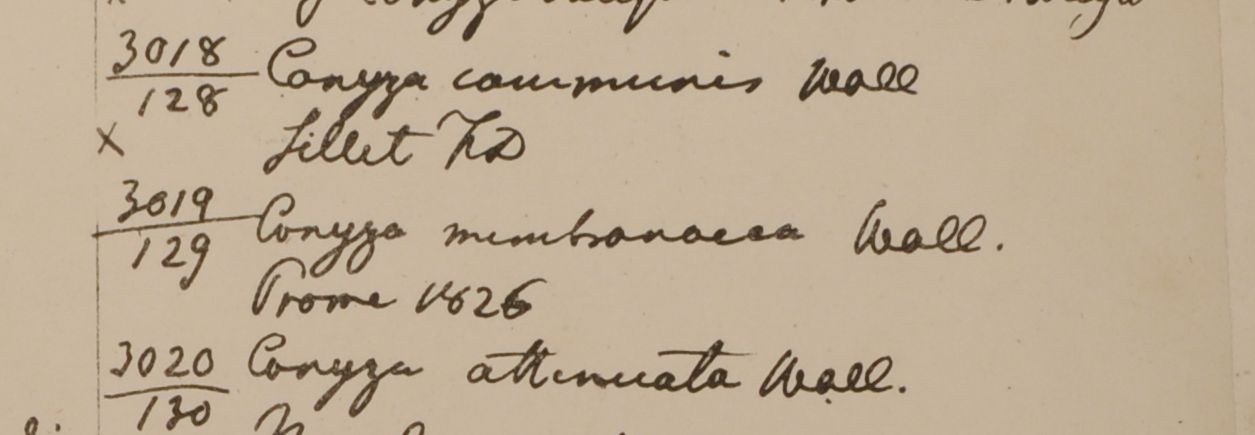 3018 Conyza communis Wall
128
x Sillet FD
3019 Conyza membranacea Wall.
129
Prome 1826
3020 Conyza attenuata Wall.
130